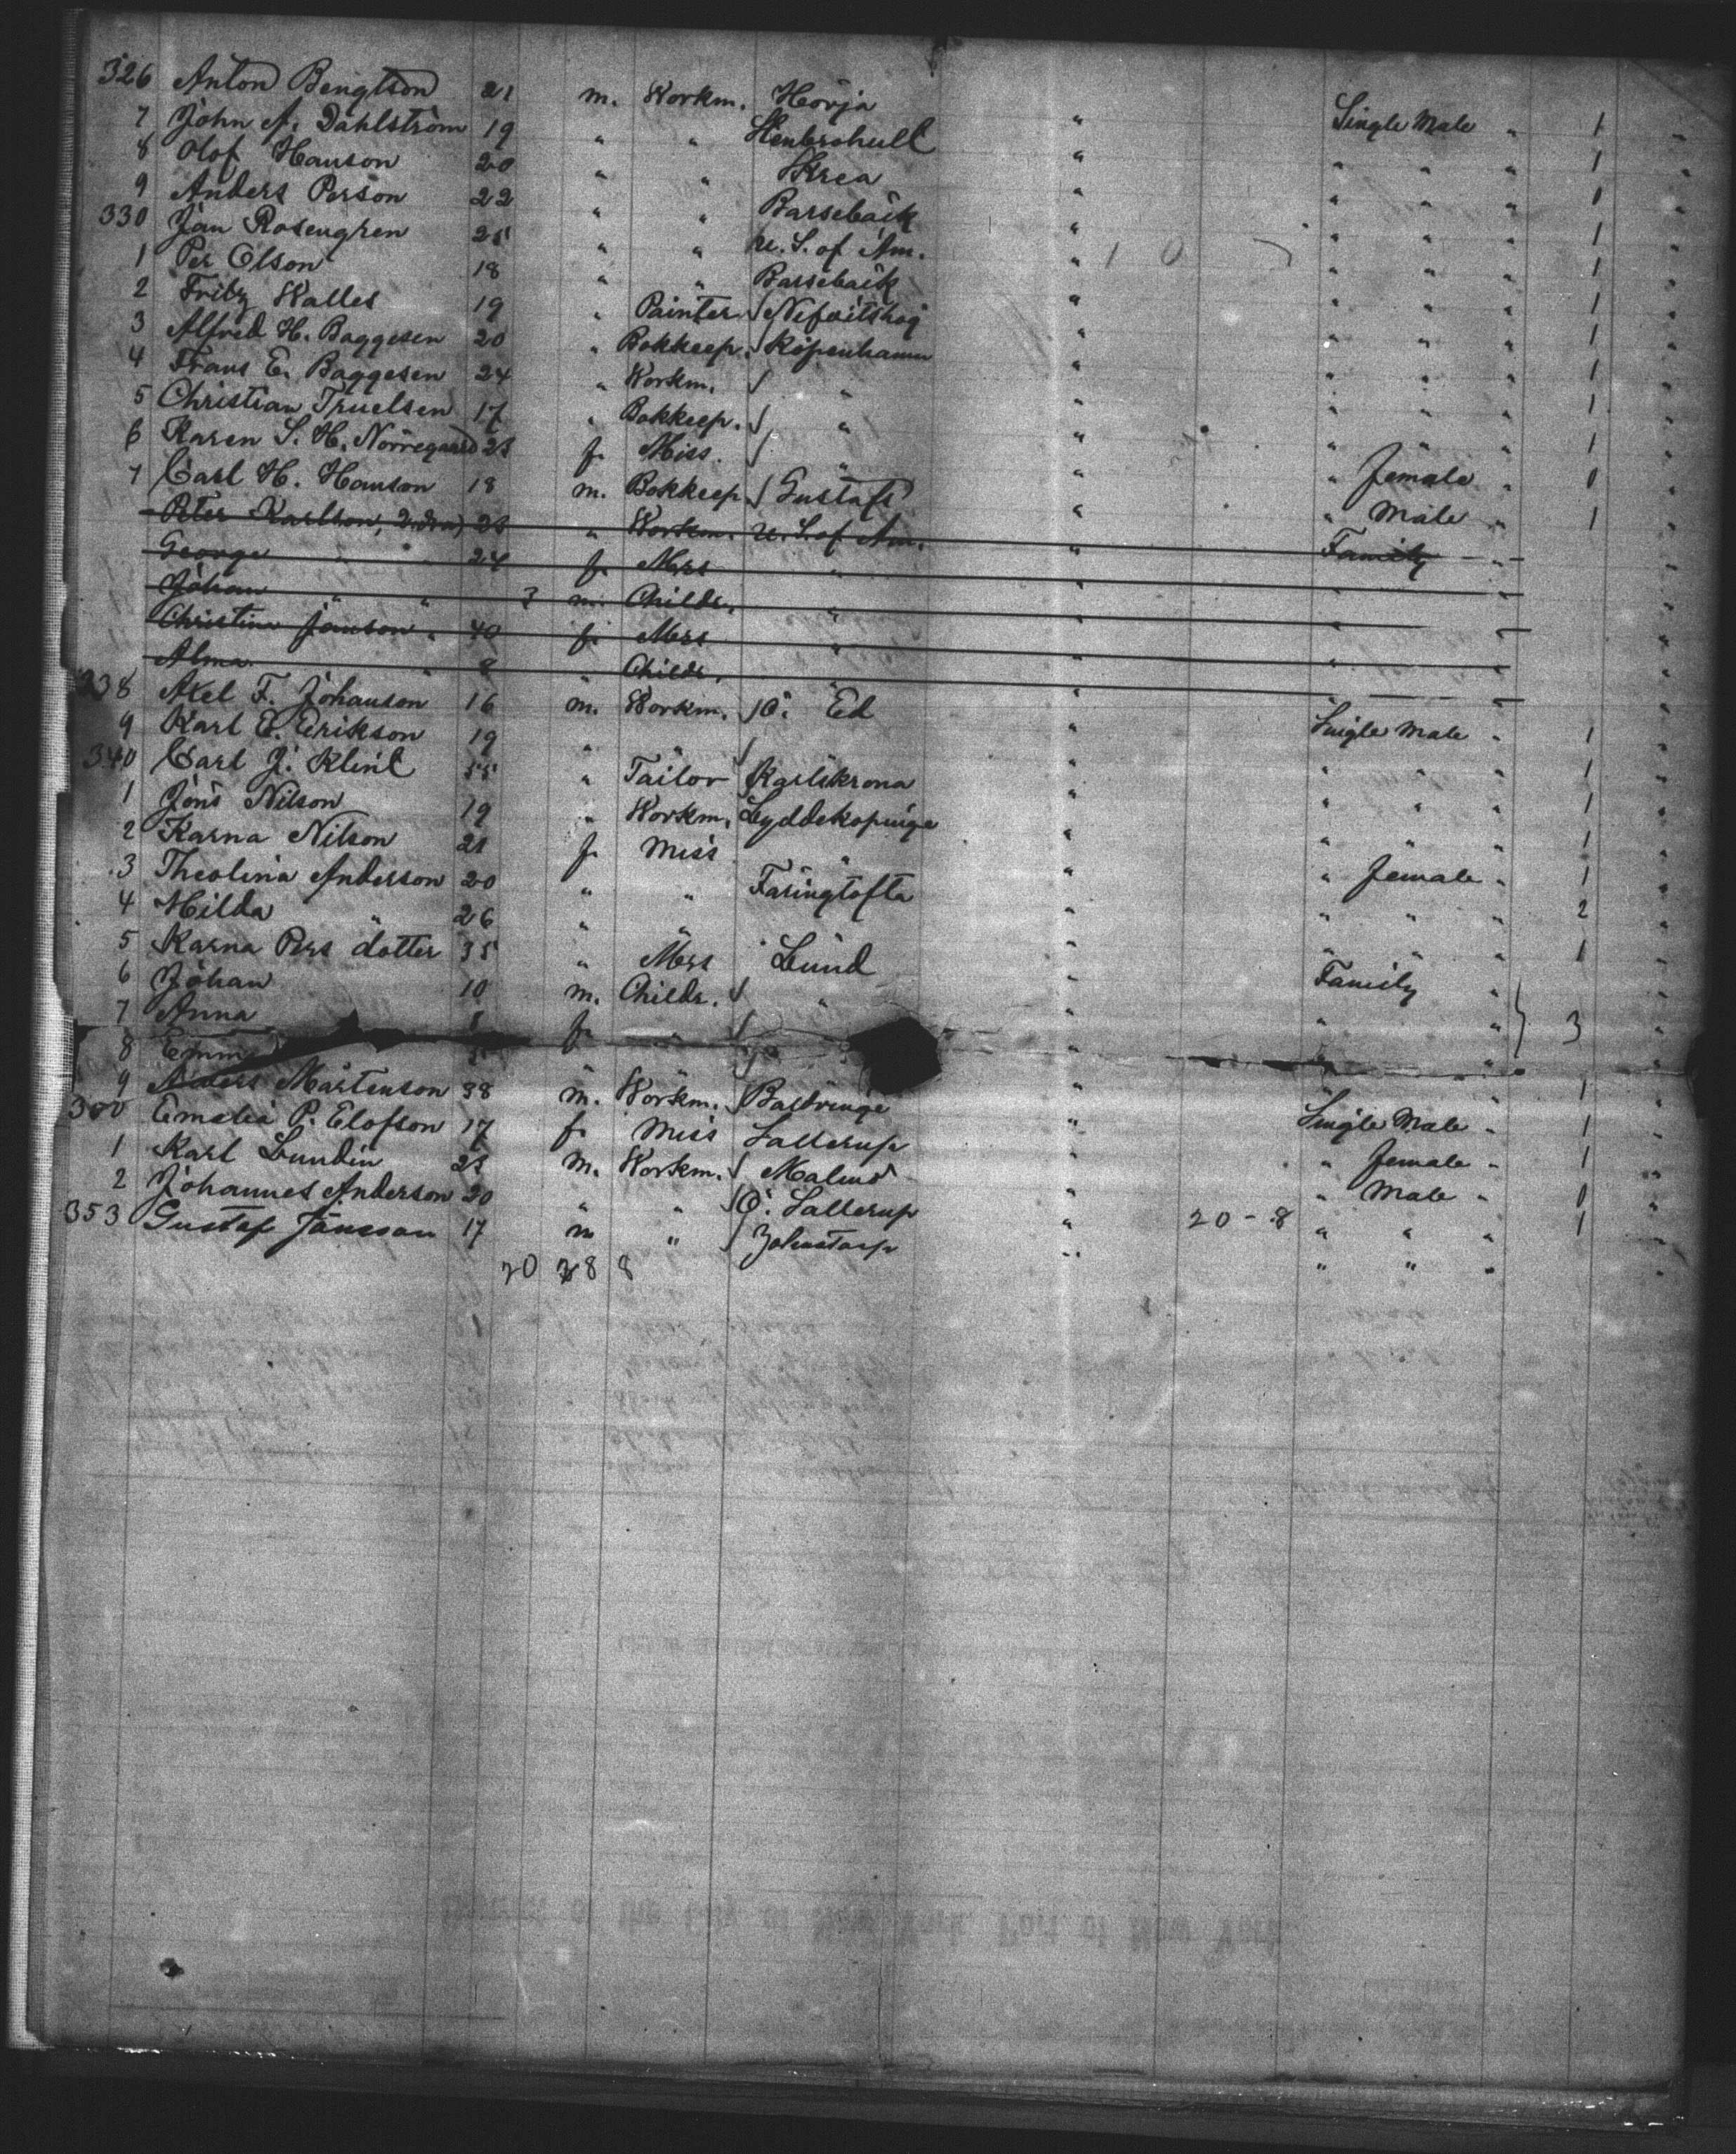 326 Anton Bengtson 21 m. Workm. Hörja " Single Male " 1 "
7 John A. Dahlström 19 " " " " " " 1 "
8 Olof Hanson 20 " " Skrea " " " " 0 "
9 Anders Person 22 " " Barsebäck " " " " 1 "
330 Jan Rosengren 25 " " U.S. of Am. " 1 0 " " " 1 "
1 Per Olson 18 " " Barsebäck " " " " 1 "
2 Fritz Walles 19 " Painter " " " " 1 "
3 Alfred H. Baggesen 20 " Bokkeep. Köpenhamn " " " " 1 "
4 Frans E. Baggesen 24 " Workm. " " " " " 1 "
5 Christian Truelsen 17 " Bokkeep. " " " " " 1 "
6 Karen S. H. Nörregaard f. Miss. " " " Female " 0 "
7 Carl H. Hanson 18 m. Bokkeep. Gustafs " " Male " 1 "
Peter Karlson, " Workm. U.S. of Am. " Family "
George " " 24 f. Mrs " " " "
Johan " " 3 m. Childr. " " " "
Christina Janson " 40 f. Mrs " " " "
Alma " 8 " Childr. " " " "
338 Axel F. Johanson 16 m. Workm. Ö. Ed " Single Male " 1 "
9 Karl E. Erikson 19 " " " " " " 1 "
340 Carl J. Klint 55 " Tailor Karlskrona " " " " 1 "
1 Jöns Nilson 19 " Workm. Lyddekopinge " " " " 1 "
2 Karna Nilson 21 f. Miss " " " Female " 1 "
3 Theolina Anderson 20 " " Färingtofta " " " " 2 "
4 Hilda " 26 " " " " " " 1 "
5 Karna Pers dotter 35 " Mrs Lund " Family "
6 Johan 10 m. Childr. " " " " } 3 "
7 Anna f. " " " " "
8 Emma " " " "
9 Anders Mårtenson 38 m. Workm. Baldringe " Single Male " 1 "
350 Emelia P. Elofson 17 f. Miss Sallerup " " Female " 1 "
1 Karl Lundin m. Workm. Malmö " " Male " 1 "
2 Johannes Anderson 20 " " Ö. Sallerup " 20 - 8 " " " 0 "
353 Gustaf Jönsson 17 m " " " " " 1 "
20 28 8